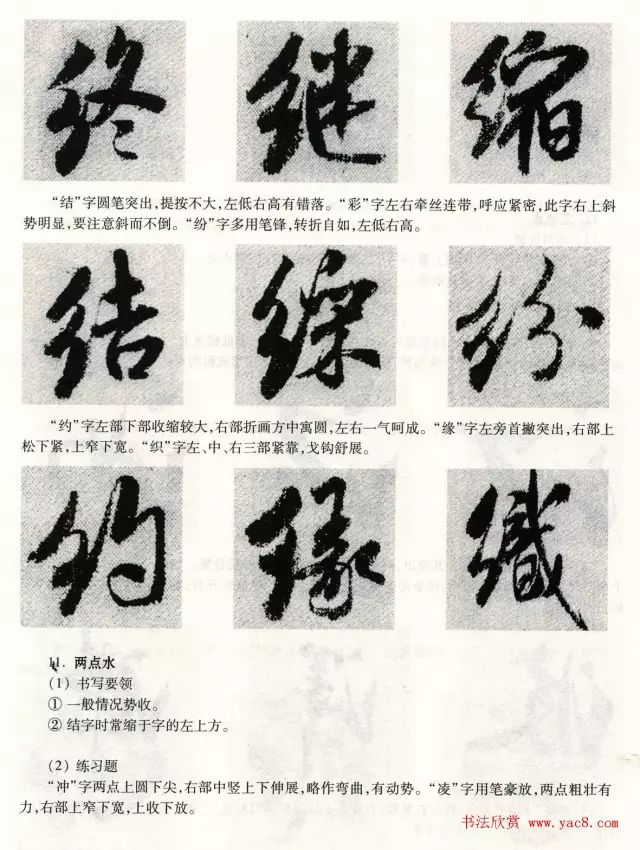 终 继 缩
“结”字圆笔突出，提按不大，左低右高有错落。“彩”字左右牵丝连带，呼应紧密，此字右上斜
势明显，要注意斜而不倒。“纷”字多用笔锋，转折自如，左低右高。
结 纷
“约”字左部下部收缩较大，右部折画方中寓圆，左右一气呵成。“缘”字左旁首撇突出，右部上
松下紧，上窄下宽。“织”字左、中、右三部紧靠，戈钩舒展。
约 缘 织
11. 两点水
(1) 书写要领
① 一般情况势收。
② 结字时常缩于字的左上方。
(2) 练习题
“冲”字两点上圆下尖，右部中竖上下伸展，略作弯曲，有动势。“凌”字用笔豪放，两点粗壮有
力，右部上窄下宽，上收下放。
书法欣赏 www.yac8.com